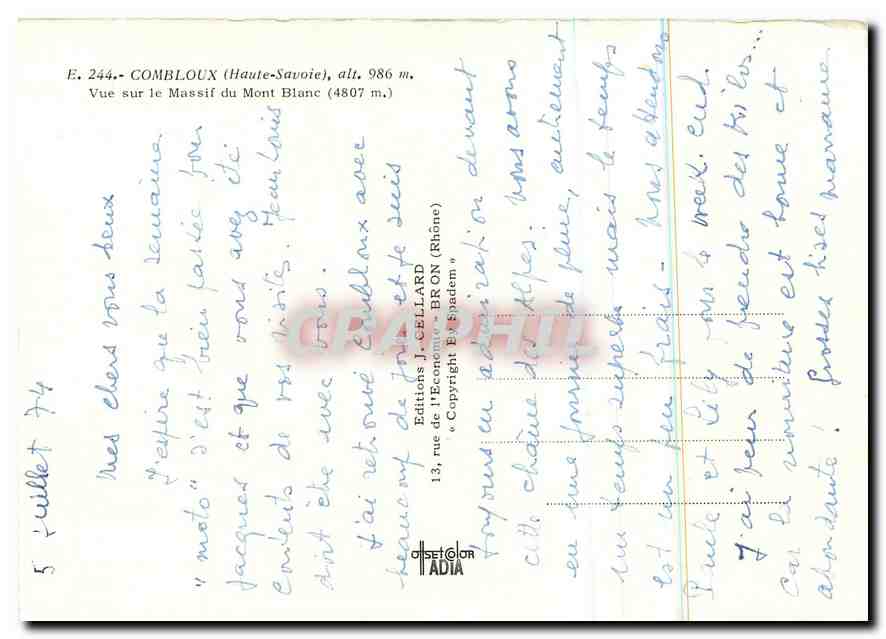 E. 244.- COMBLOUX (Haute-Savoie), alt. 986 m.
Vue sur le Massif du Mont Blanc (4807 m.)
5 juillet 74
Mes chers vous deux
J'espère que la semaine
"moto" s'est bien passée pour
Jacques et que vous avez été
contents de vos visites. Jean Louis
doit être avec vous.
J'ai retrouvé Combloux avec
beaucoup de joie et je suis
toujours en admiration devant
cette chaîne des Alpes. Nous avons
eu une journée de pluie, autrement
un temps superbe mais le temps
est un peu frais - nous attendons
Paule et Lily pour le week-end.
J'ai peur de prendre des kilos...
car la nourriture est bonne et
abondante! Grosses bises marraine
Editions J. CELLARD
13, rue de l'Economie - BRON (Rhône)
« Copyright By Spadem »
OFFSETCOLOR
IADIA
CPAPHIL